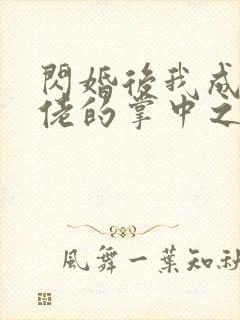 閃婚後我成
佬的掌中之
風舞一葉知秋